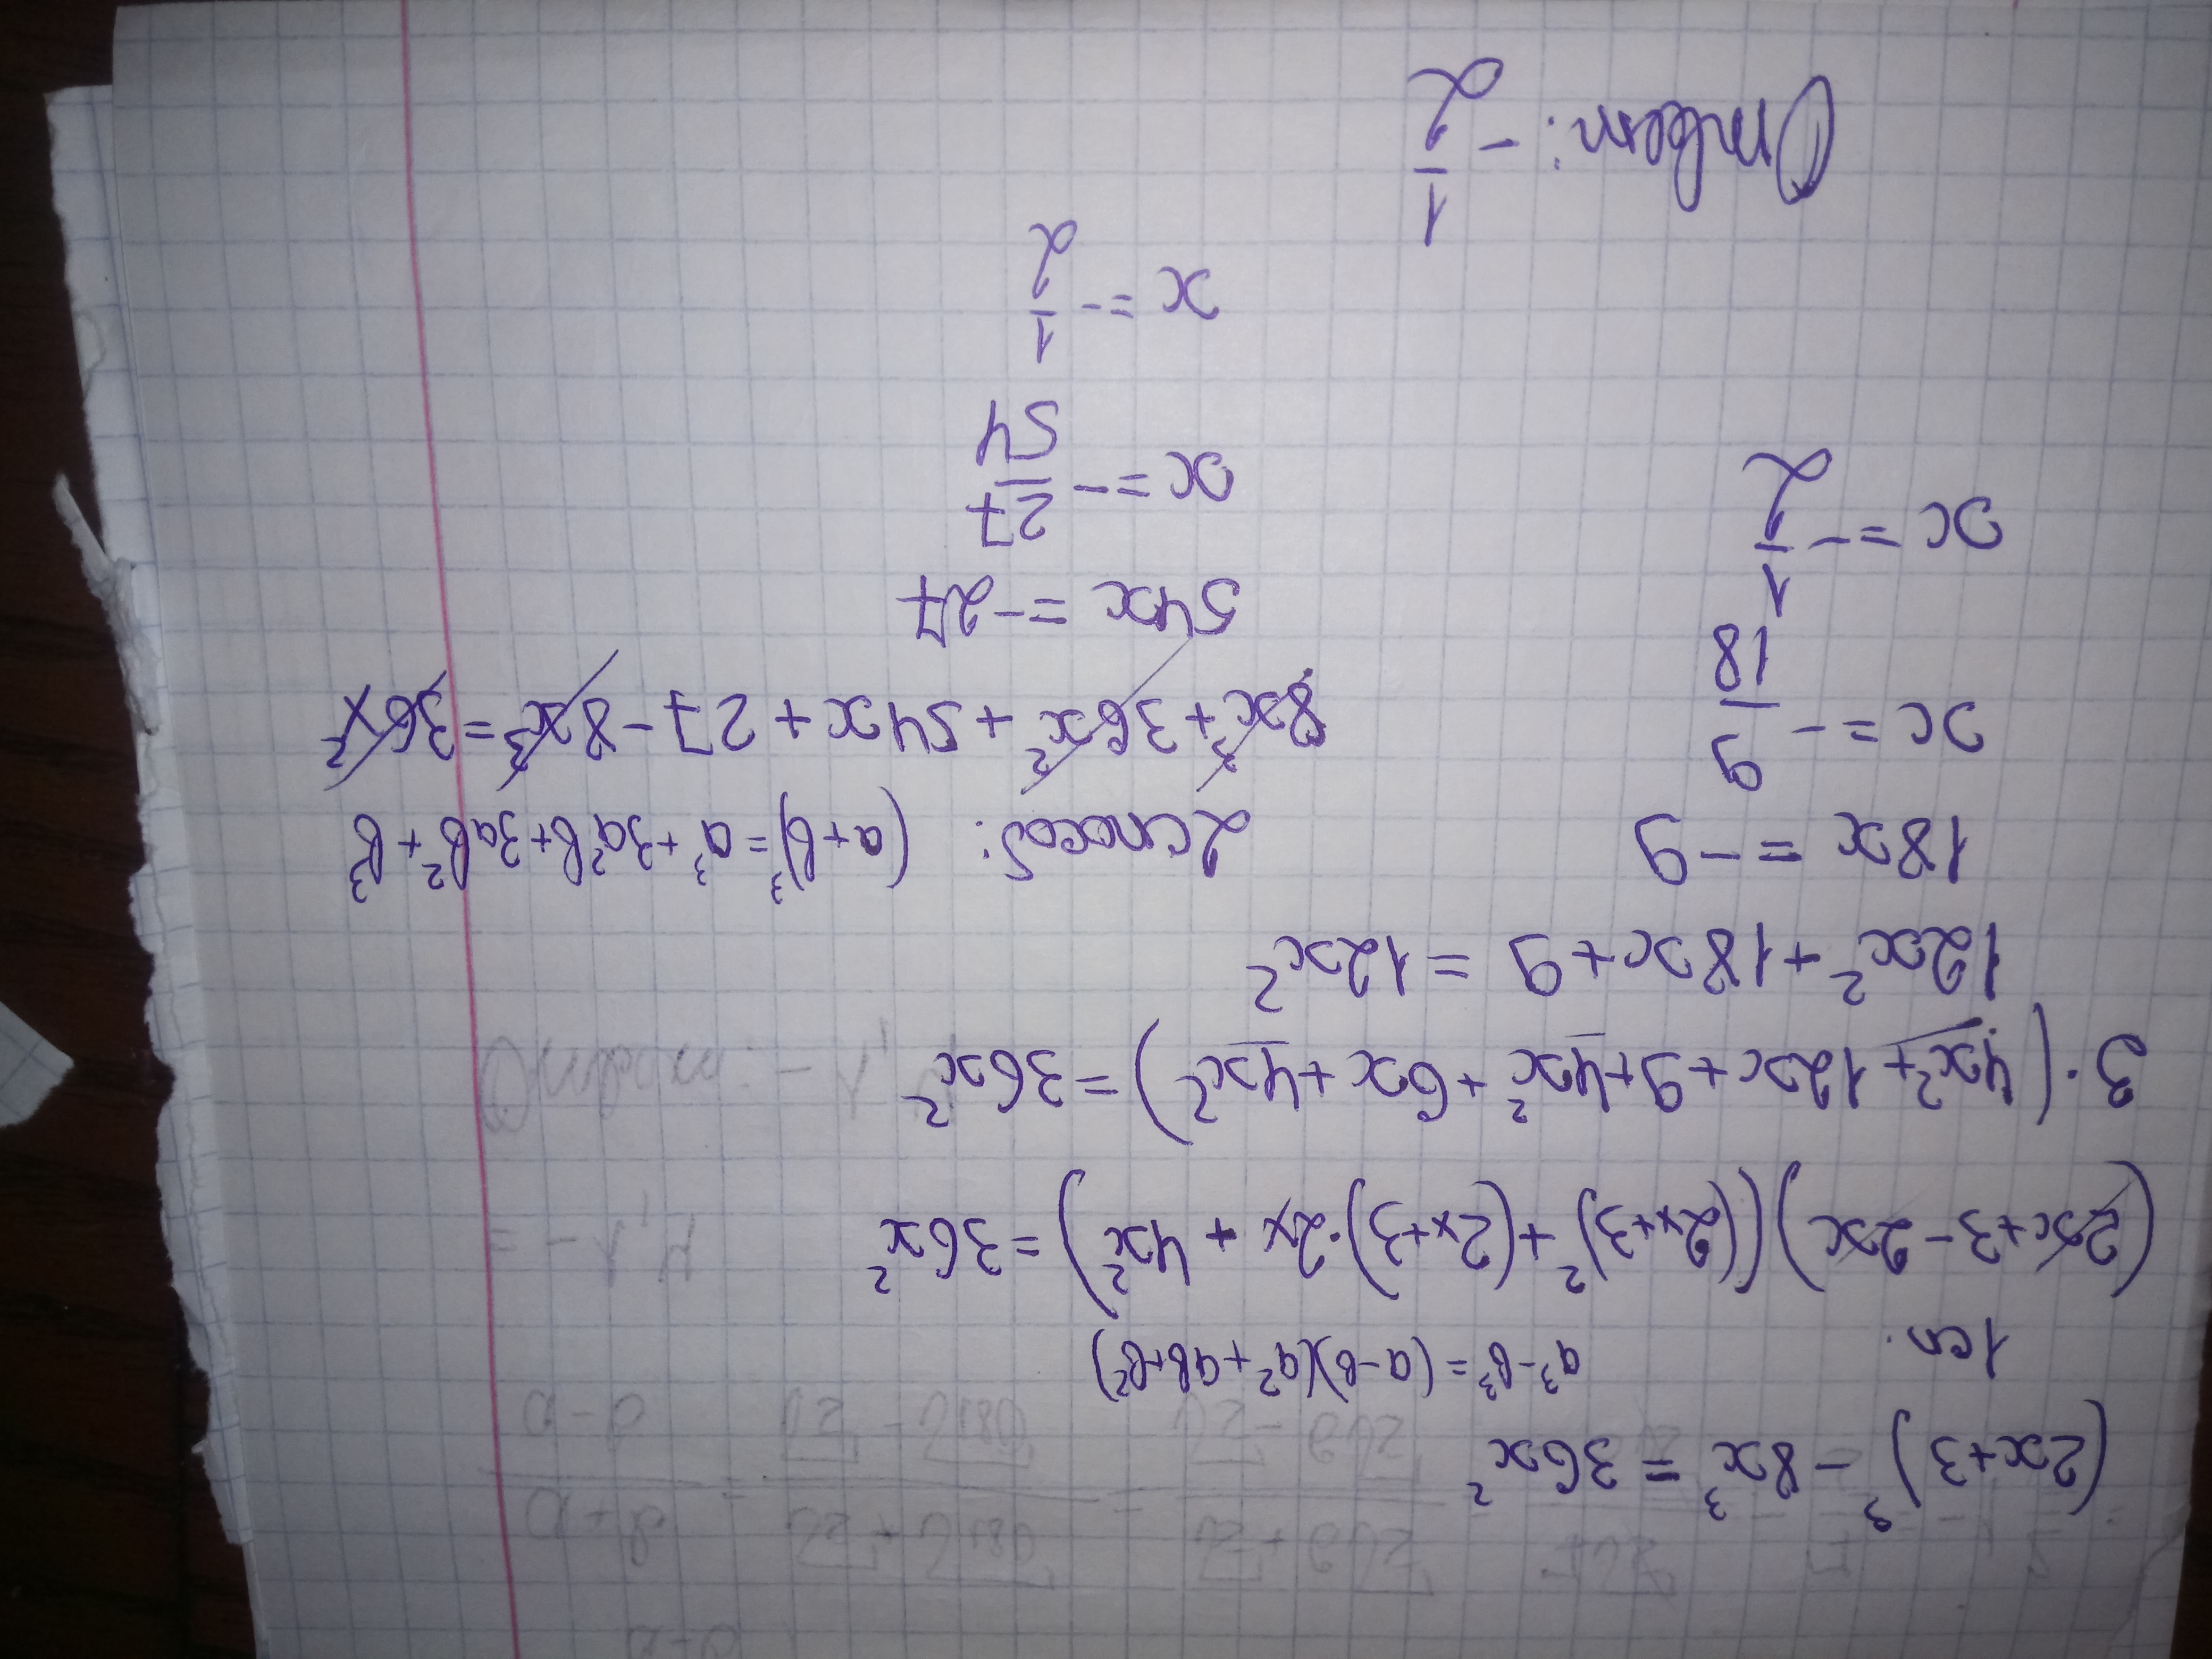 (2x+3)³ - 8x³ = 36x²
1сп. a³-b³ = (a-b)(a²+ab+b²)
(2x+3-2x)((2x+3)²+(2x+3)·2x + 4x²) = 36x²
3·(4x²+12x+9+4x²+6x+4x²) = 36x²
12x²+18x+9 = 12x²
18x = -9
x = -9/18
x = -1/2
2 способ: (a+b)³ = a³+3a²b+3ab²+b³
8x³+36x²+54x+27-8x³=36x²
54x = -27
x = -27/54
x = -1/2
Ответ: -1/2